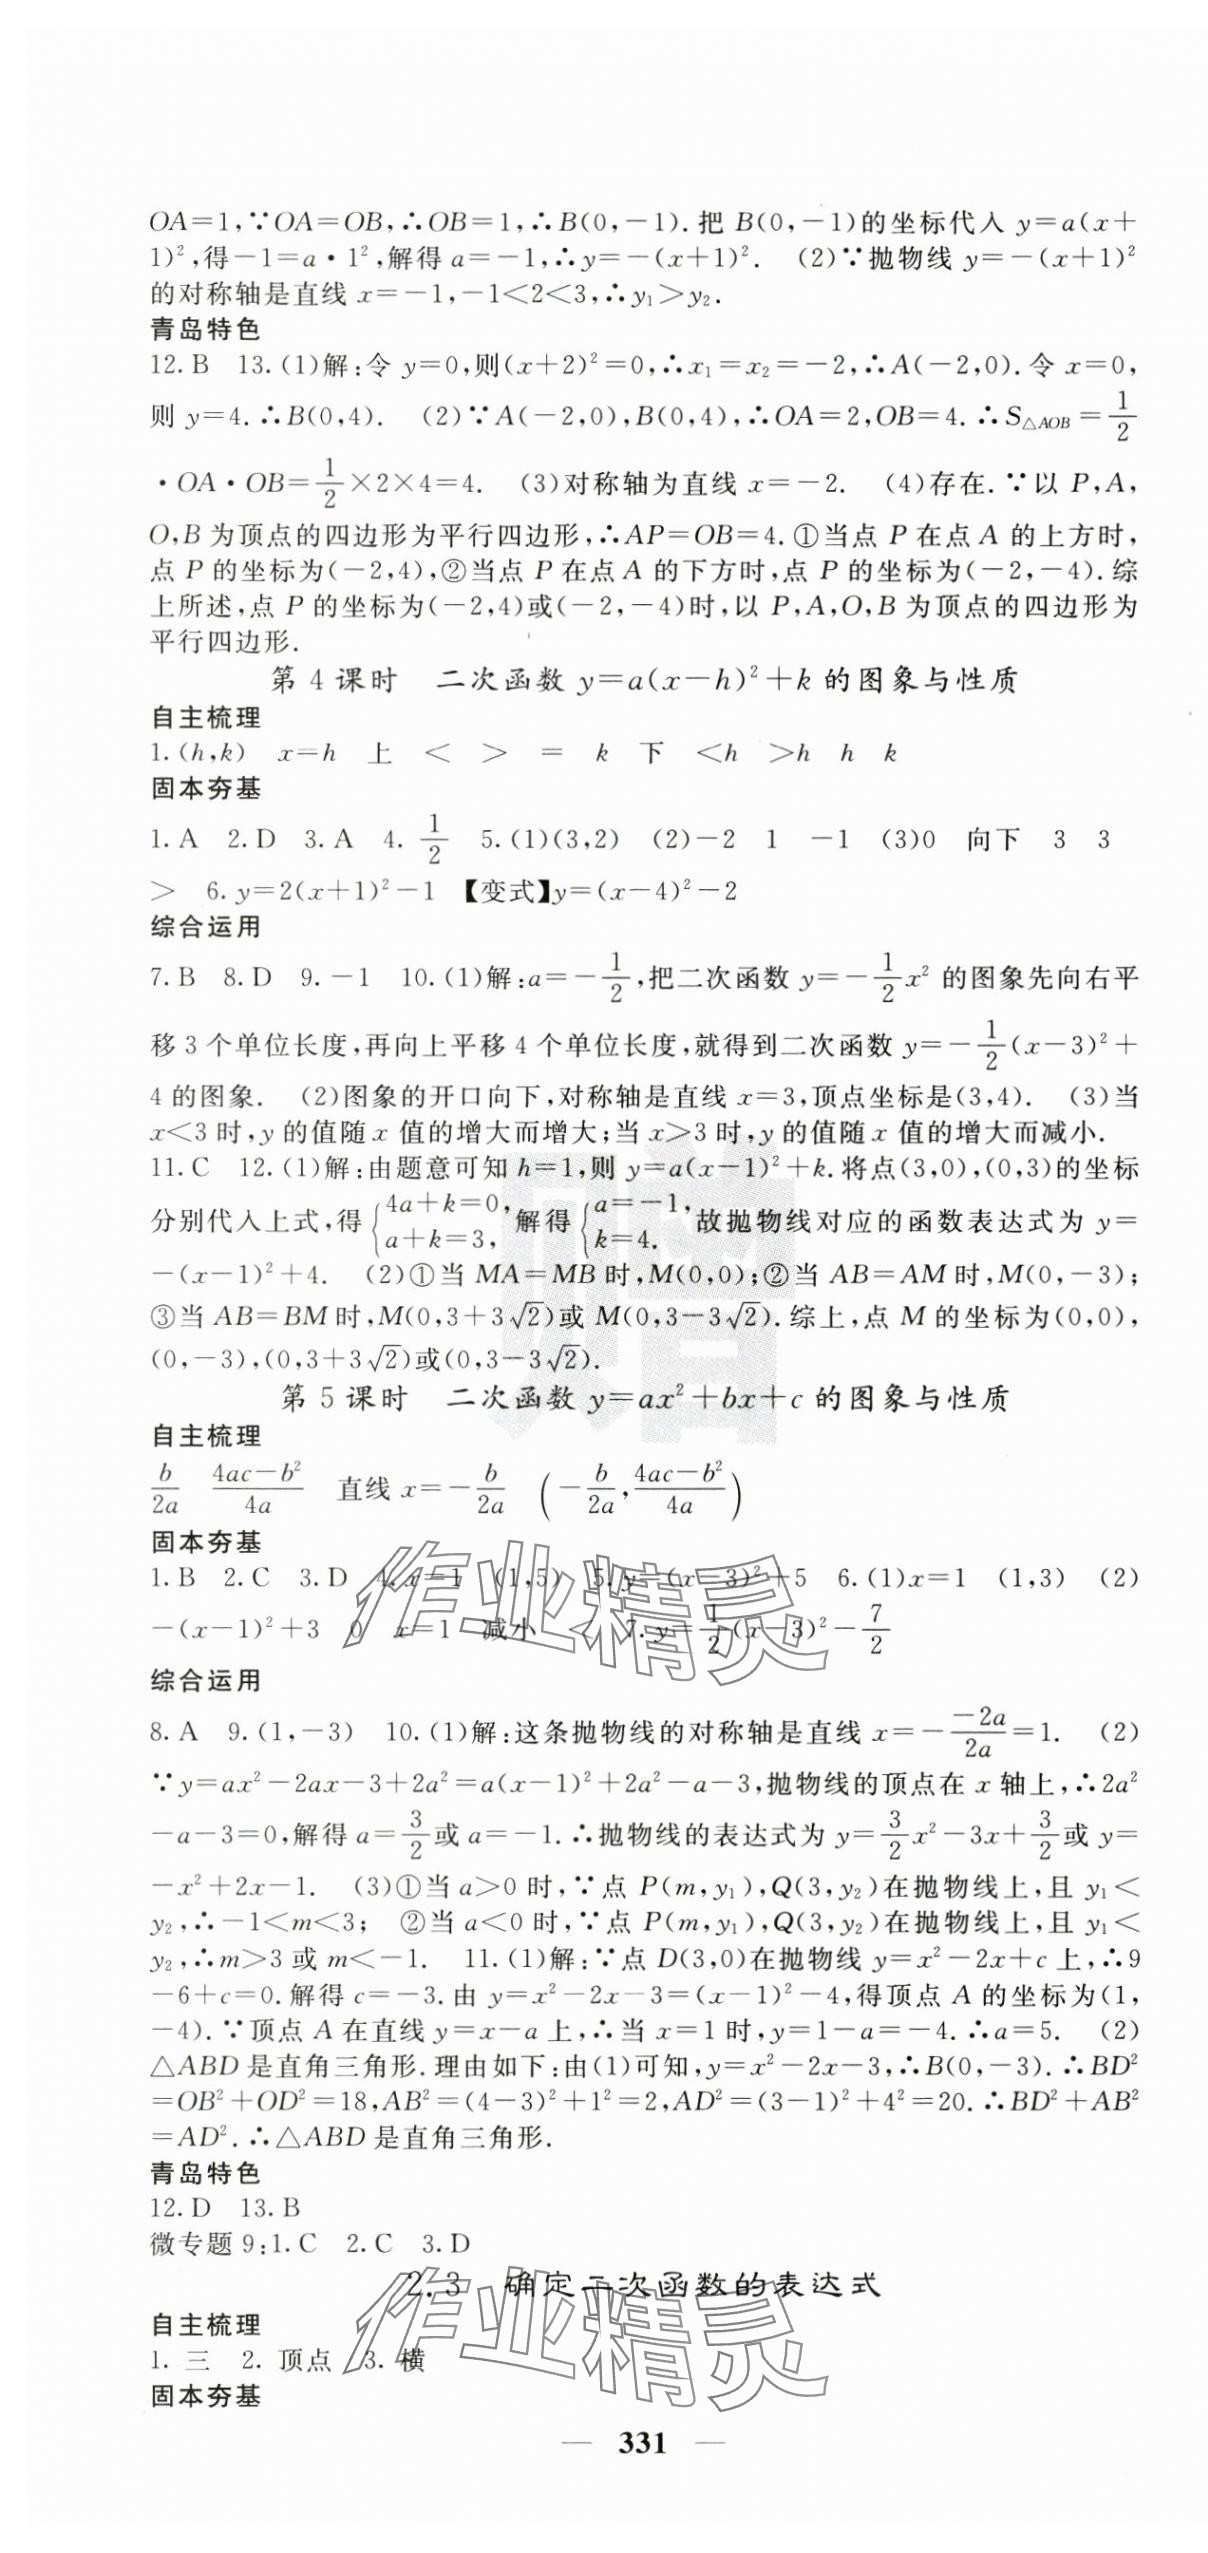 OA=1,∵OA=OB,∴OB=1,∴B(0,-1).把 B(0,-1)的坐标代入 y=a(x+
1)²,得-1=a·1²,解得 a=-1,∴y=-(x+1)². (2)∵抛物线 y=-(x+1)²
的对称轴是直线 x=-1,-1<2<3,∴y₁>y₂.
青岛特色
12.B 13.(1)解:令 y=0,则(x+2)²=0,∴x₁=x₂=-2,∴A(-2,0).令 x=0,
则 y=4.∴B(0,4). (2)∵A(-2,0),B(0,4),∴OA=2,OB=4.∴S△AOB=1/2
·OA·OB=1/2×2×4=4. (3)对称轴为直线 x=-2. (4)存在.∵以 P,A,
O,B 为顶点的四边形为平行四边形,∴AP=OB=4.①当点 P 在点 A 的上方时,
点 P 的坐标为(-2,4),②当点 P 在点 A 的下方时,点 P 的坐标为(-2,-4).综
上所述,点 P 的坐标为(-2,4)或(-2,-4)时,以 P,A,O,B 为顶点的四边形为
平行四边形.
第 4 课时 二次函数 y=a(x-h)²+k 的图象与性质
自主梳理
1.(h,k) x=h 上 < > = k 下 <h >h h k
固本夯基
1.A 2.D 3.A 4.1/2 5.(1)(3,2) (2)-2 1 -1 (3)0 向下 3 3
> 6.y=2(x+1)²-1 【变式】y=(x-4)²-2
综合运用
7.B 8.D 9.-1 10.(1)解:a=-1/2,把二次函数 y=-1/2x² 的图象先向右平
移 3 个单位长度,再向上平移 4 个单位长度,就得到二次函数 y=-1/2(x-3)²+
4 的图象. (2)图象的开口向下,对称轴是直线 x=3,顶点坐标是(3,4). (3)当
x<3 时,y 的值随 x 值的增大而增大;当 x>3 时,y 的值随 x 值的增大而减小.
11.C 12.(1)解:由题意可知 h=1,则 y=a(x-1)²+k.将点(3,0),(0,3)的坐标
分别代入上式,得{4a+k=0, a+k=3, 解得{a=-1, k=4. 故抛物线对应的函数表达式为 y=
-(x-1)²+4. (2)①当 MA=MB 时,M(0,0);②当 AB=AM 时,M(0,-3);
③当 AB=BM 时,M(0,3+3√2)或 M(0,3-3√2).综上,点 M 的坐标为(0,0),
(0,-3),(0,3+3√2)或(0,3-3√2).
赠
第 5 课时 二次函数 y=ax²+bx+c 的图象与性质
自主梳理
b/2a (4ac-b²)/4a 直线 x=-b/2a (-b/2a,(4ac-b²)/4a)
固本夯基
1.B 2.C 3.D 4.x=1 (1,5) 5.y=(x-3)²+5 6.(1)x=1 (1,3) (2)
-(x-1)²+3 0 x=1 减小 < 7.y=1/2(x-3)²-7/2
作业精灵
综合运用
8.A 9.(1,-3) 10.(1)解:这条抛物线的对称轴是直线 x=-(-2a)/2a=1. (2)
∵y=ax²-2ax-3+2a²=a(x-1)²+2a²-a-3,抛物线的顶点在 x 轴上,∴2a²
-a-3=0,解得 a=3/2或 a=-1.∴抛物线的表达式为 y=3/2x²-3x+3/2或 y=
-x²+2x-1. (3)①当 a>0 时,∵点 P(m,y₁),Q(3,y₂)在抛物线上,且 y₁<
y₂,∴-1<m<3; ②当 a<0 时,∵点 P(m,y₁),Q(3,y₂)在抛物线上,且 y₁<
y₂,∴m>3 或 m<-1. 11.(1)解:∵点 D(3,0)在抛物线 y=x²-2x+c 上,∴9
-6+c=0.解得 c=-3.由 y=x²-2x-3=(x-1)²-4,得顶点 A 的坐标为(1,
-4).∵顶点 A 在直线 y=x-a 上,∴当 x=1 时,y=1-a=-4.∴a=5. (2)
△ABD 是直角三角形.理由如下:由(1)可知,y=x²-2x-3,∴B(0,-3).∴BD²
=OB²+OD²=18,AB²=(4-3)²+1²=2,AD²=(3-1)²+4²=20.∴BD²+AB²
=AD².∴△ABD 是直角三角形.
青岛特色
12.D 13.B
微专题 9:1.C 2.C 3.D
2.3 确定二次函数的表达式
自主梳理
1. 三 2. 顶点 3. 横
作业精灵
固本夯基
— 331 —